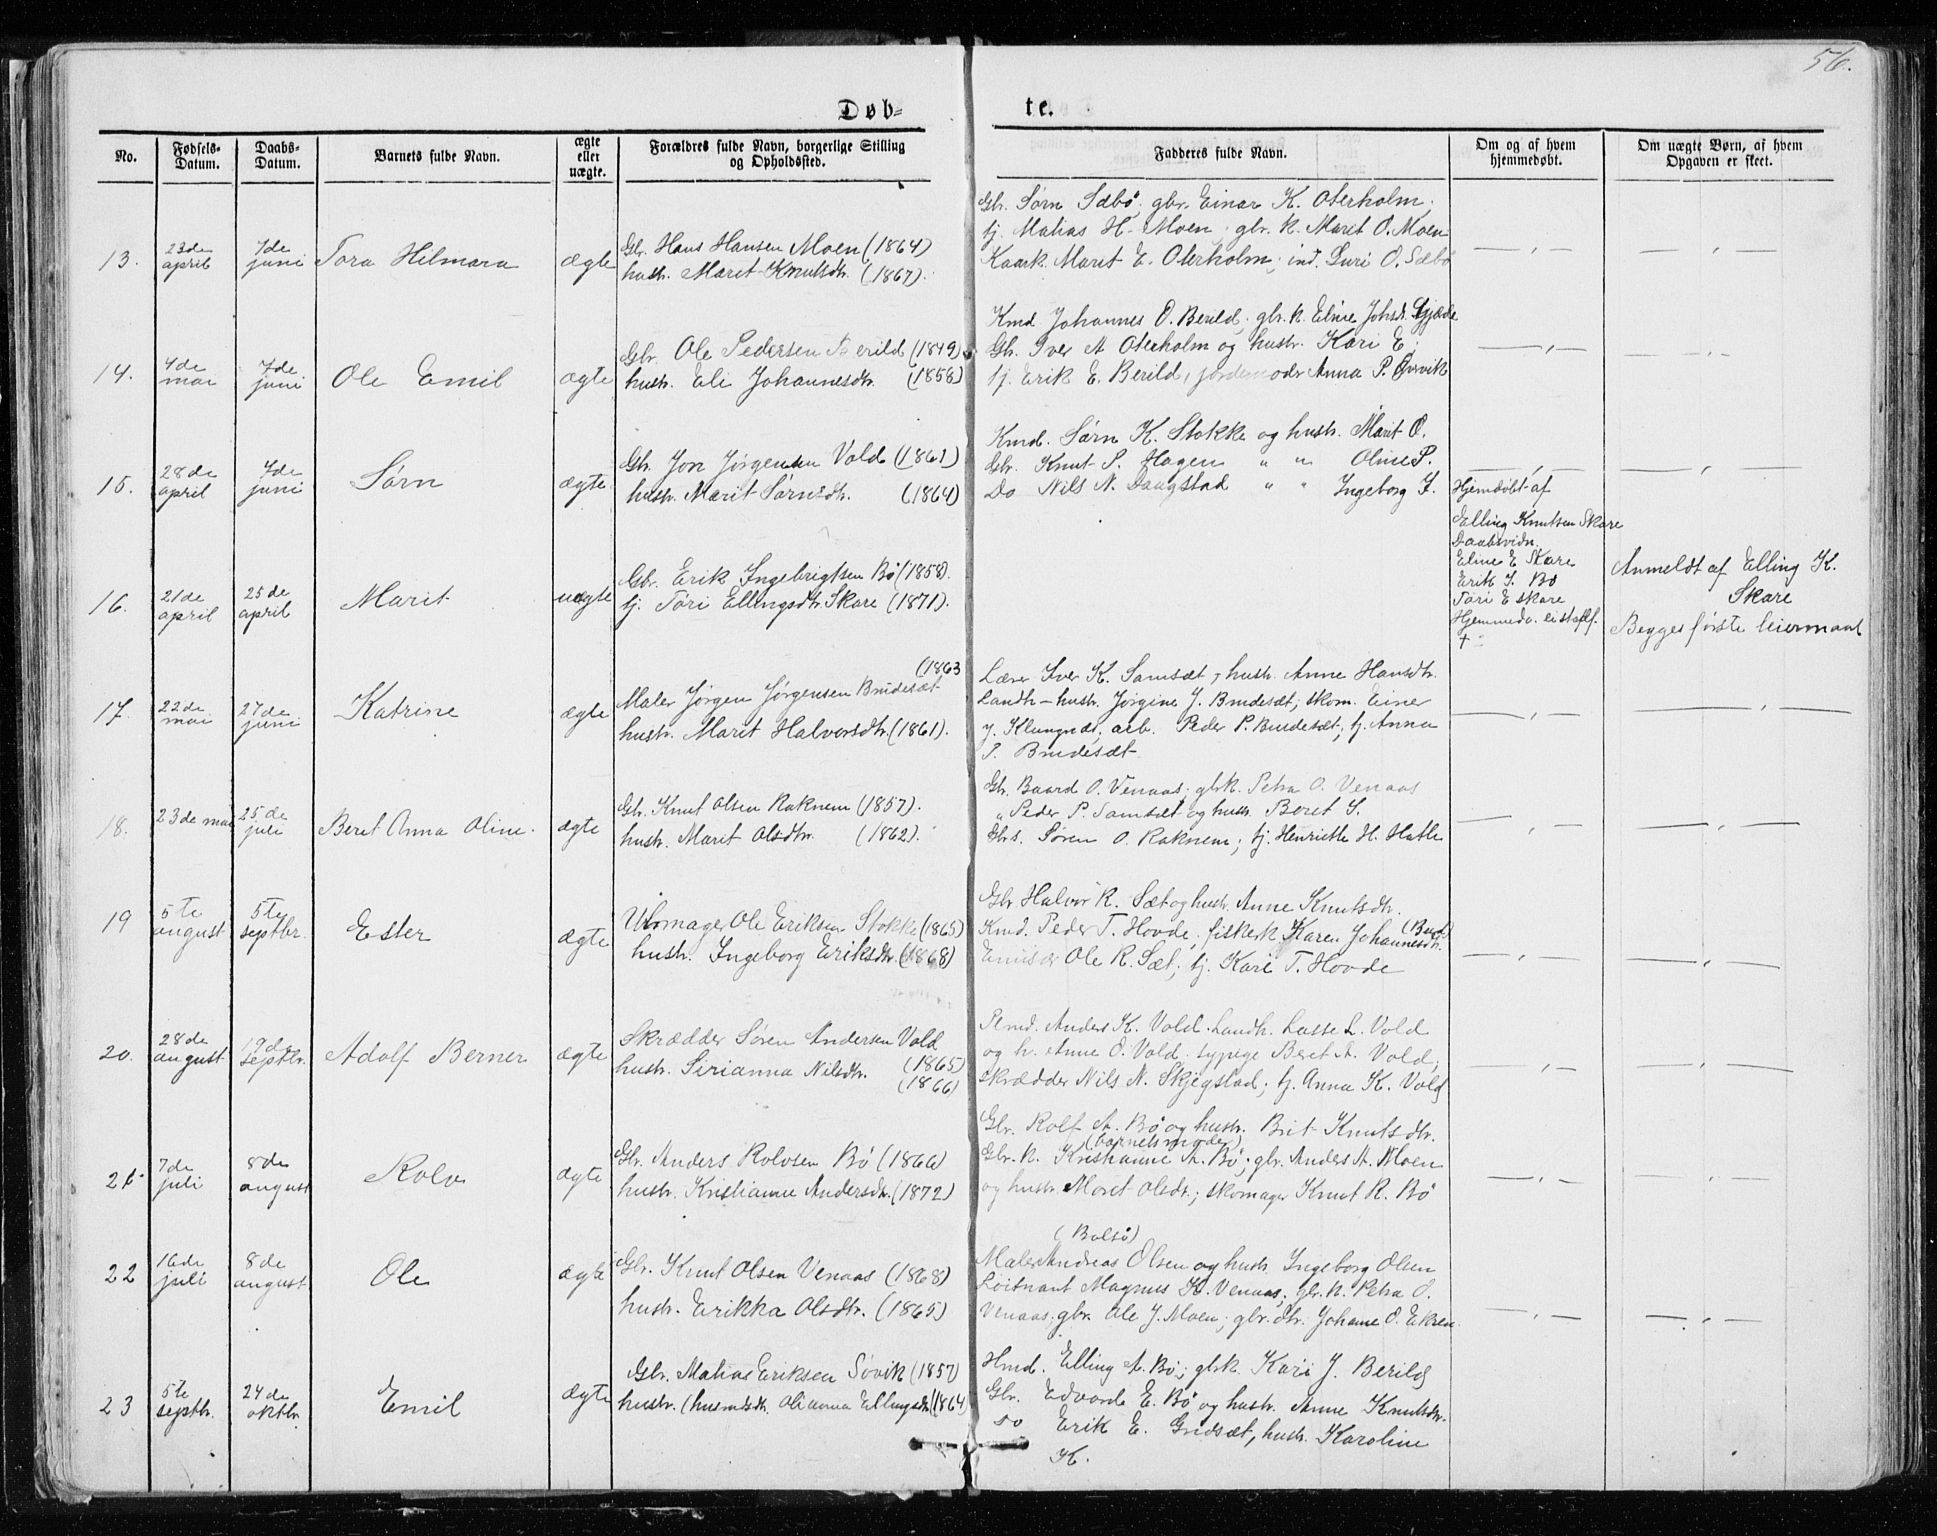 56.
Døb=
te.
No.
Fødsels-Datum.
Daabs-Datum.
Barnets fulde Navn.
ægte eller uægte.
Forældres fulde Navn, borgerlige Stilling og Opholdssted.
Fadderes fulde Navn.
Om og af hvem hjemmedøbt.
Om uægte Børn, af hvem Opgaven er skeet.
13.
23de april
7de juni
Tora Hilmara
ægte
Gbr. Hans Hansen Moen (1864)
hustr. Marit Knutsdtr. (1867).
Gbr. Sørn Sæbø; gbr. Einar K. Oterholm.
tj. Matias H. Moen; gbr. k. Marit O. Moen
Kaark. Marit E. Oterholm; ind. Guri O. Sæbø
14.
4de mai
7de juni
Ole Emil
ægte
Gbr. Ole Pedersen Berild (1849)
hustr. Eli Johannesdtr. (1858)
Kmd. Johannes O. Berild; gbr. k. Eline Johsdtr. Gjæde
Gbr. Iver A. Oterholm og hustr. Kari E.
tj. Erik E. Berild, jordemoder Anna P. Øvervik
15.
28de april
7de juni
Sørn
ægte.
Gbr. Jon Jørgensen Vold (1861)
hustr. Marit Sørnsdtr. (1864)
Kmd. Sørn K. Stokke og hustr. Marit O.
Gbr. Knut P. Hagen " " Oline P.
Do Nils N. Daugstad " " Ingeborg I.
16.
21de april
25de april
Marit
uægte
Gbr. Erik Ingebrigtsen Bø (1858).
tj. Tøri Ellingsdtr. Skare (1871).
Hjemdøbt af
Elling Knutsen Skare
Daabsvidn.
Eline E Skare
Erik I. Bø
Tøri E Skare
Hjemmed. ei stadf.
†
Anmeldt af Elling K.
Skare
Begges første leiermaal
17.
22de mai
27de juni
Katrine
ægte
(1863
Maler Jørgen Jørgensen Brudesæt
hustr. Marit Halvorsdtr. (1861).
Lærer Iver K. Samsæt, hustr. Anne Hansdtr.
Landh - hustr. Jørgine J. Brudesæt; skom. Einer
J. Klungnæs; arb. Peder P. Brudesæt; tj. Anna
P. Brudesæt
18.
23de mai
25de juli
Beret Anna Oline.
ægte
Gbr. Knut Olsen Raknem (1857).
hustr. Marit Olsdtr. (1862).
Gbr. Baard O. Venaas; gbrk. Petra O. Venaas
" Peder P. Samsæt og hustr. Beret I.
Gbrs. Søren O. Raknem; tj. Henriette H. Hatle
19
5te august
5te septbr.
Ester
ægte
Urmager Ole Eriksen Stokke (1865)
hustr. Ingeborg Eriksdtr. (1868)
Gbr. Halvor R. Sæt og hustr. Anne Knutsdtr.
Kmd. Peder T. Hovde; fiskerk Karen Johannesdtr. (Bud)
Emissær Ole R. Sæt; tj. Kari T. Hovde
20.
28de august
19de septbr.
Adolf Berner
ægte
Skrædder Søren Andersen Vold
hustr. Sirianna Nilsdtr. (1865)
(1866)
Pmd. Anders K. Vold. Landh. Lasse L. Vold
og h. Anne O. Vold. sypige Beret A. Vold;
skrædder Nils N. Skjegstad; tj. Anna K. Vold
21.
7de juli
8de august
Rolv
ægte
Gbr. Anders Rolvsen Bø (1866)
hustr. Kristianne Andersdtr. (1872)
Gbr. Rolf A. Bø og hustr. Brit Knutsdtr.
(barnets moder)
Gbr. k. Kristianne A. Bø; gbr. Anders A. Moen
og hustr. Maret Olsdtr.; skomager Knut R. Bø
22
16de juli
8de august
Ole
ægte
Gbr. Knut Olsen Venaas (1868)
hustr. Erikka Olsdtr. (1865)
(Bolsø)
Maler Andreas Olsen og hustr. Ingeborg Olsen
Løitnant Magnus K. Venaas; gbr. k. Petra O.
Venaas; gbr. Ole J. Moen; gbr. dtr. Johanne O. Ekren
23
5te septbr.
24de oktbr.
Emil
ægte
Gbr. Matias Eriksen Søvik (1857)
hustr. (husmdsdtr. Olianna Ellingsdtr. (1864)
Hmd. Elling A. Bø; gbrk. Kari J. Berild
Gbr. Edvard E. Bø og hustr. Anne Knutsdtr.
Do Erik E. Gridsæt, hustr. Karoline
K.